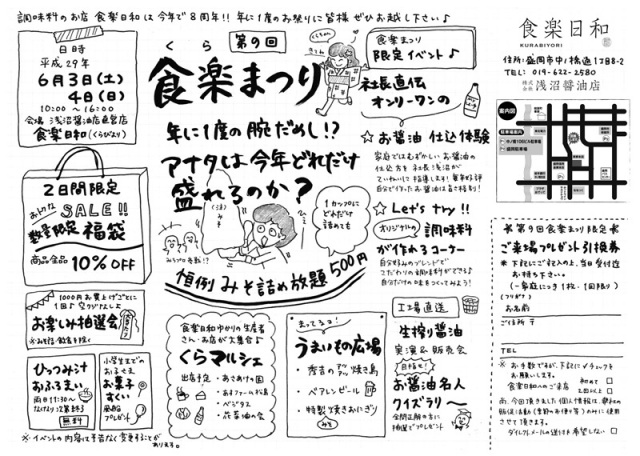 調味料のお店 食楽日和は今年で8周年!! 年に1度のお祭りに皆様ぜひお越し下さい♪
日時
平成29年
6月3日(土)
4日(日)
10:00 ~ 16:00
会場 浅沼醤油店直営店
食楽日和(くらびより)
くら
第9回
食楽まつり
年に1度の腕だめし!?
アナタは今年どれだけ
盛れるのか?
1カップに
どれだけ
詰めても
500円
恒例 みそ詰め放題
食楽まつり
限定イベント♪
社長直伝
オンリーワンの
☆お醤油 仕込体験
家庭ではむずかしいお醤油の
仕込方を社長浅沼が
ていねいに指導します!
自分で作ったお醤油は
☆Let's try!!
オリジナルの調味料
が作れるコーナー
自分好みのブレンドで
こだわりの調味料ができる♪
自分だけの味をつくってみよう!
食楽日和
KURABIYORI
住所:盛岡市中ノ橋通1丁目8-2
TEL: 019-622-2580
株式会社 浅沼醤油店
案内図
駐車場案内
2日間限定
SALE!!
数量限定 福袋
商品全品 10%OFF
1000円お買上げごとに
1回♪空クジなし♪
お楽しみ抽選会
ひっつみ汁
おふるまい
両日11:30~
なくなり次第終了
無料
小学生までの
お子さま
お菓子
すくい
プレゼント
※イベントの内容は予告なく変更することが
あります。
食楽日和ゆかりの生産者
さん・お店が大集合♪
くらマルシェ
出店予定
・あさあけの園
・あすファーム松島
・ベジタス
・花菜油の会
まってるヨ!
うまいもの広場
・ベアレンビール
・特製焼きおにぎり
みそ
工場直送
生搾り醤油
実演&販売会
目指せ!
お醤油名人
クイズラリ~
全問正解の方に
抽選でプレゼント
*第9回食楽まつり限定*
ご来場プレゼント引換券
*下記にご記入の上、当日受付迄
お持ち下さい。
(一家庭につき1枚・1回限り)
(フリガナ)
お名前
ご住所 〒
TEL
※お手数ですが、下記に✓チェックを
お願いします。
食楽日和へのご来店 初めて □
2回以上 □
ダイレクトメールの送付を希望しない □